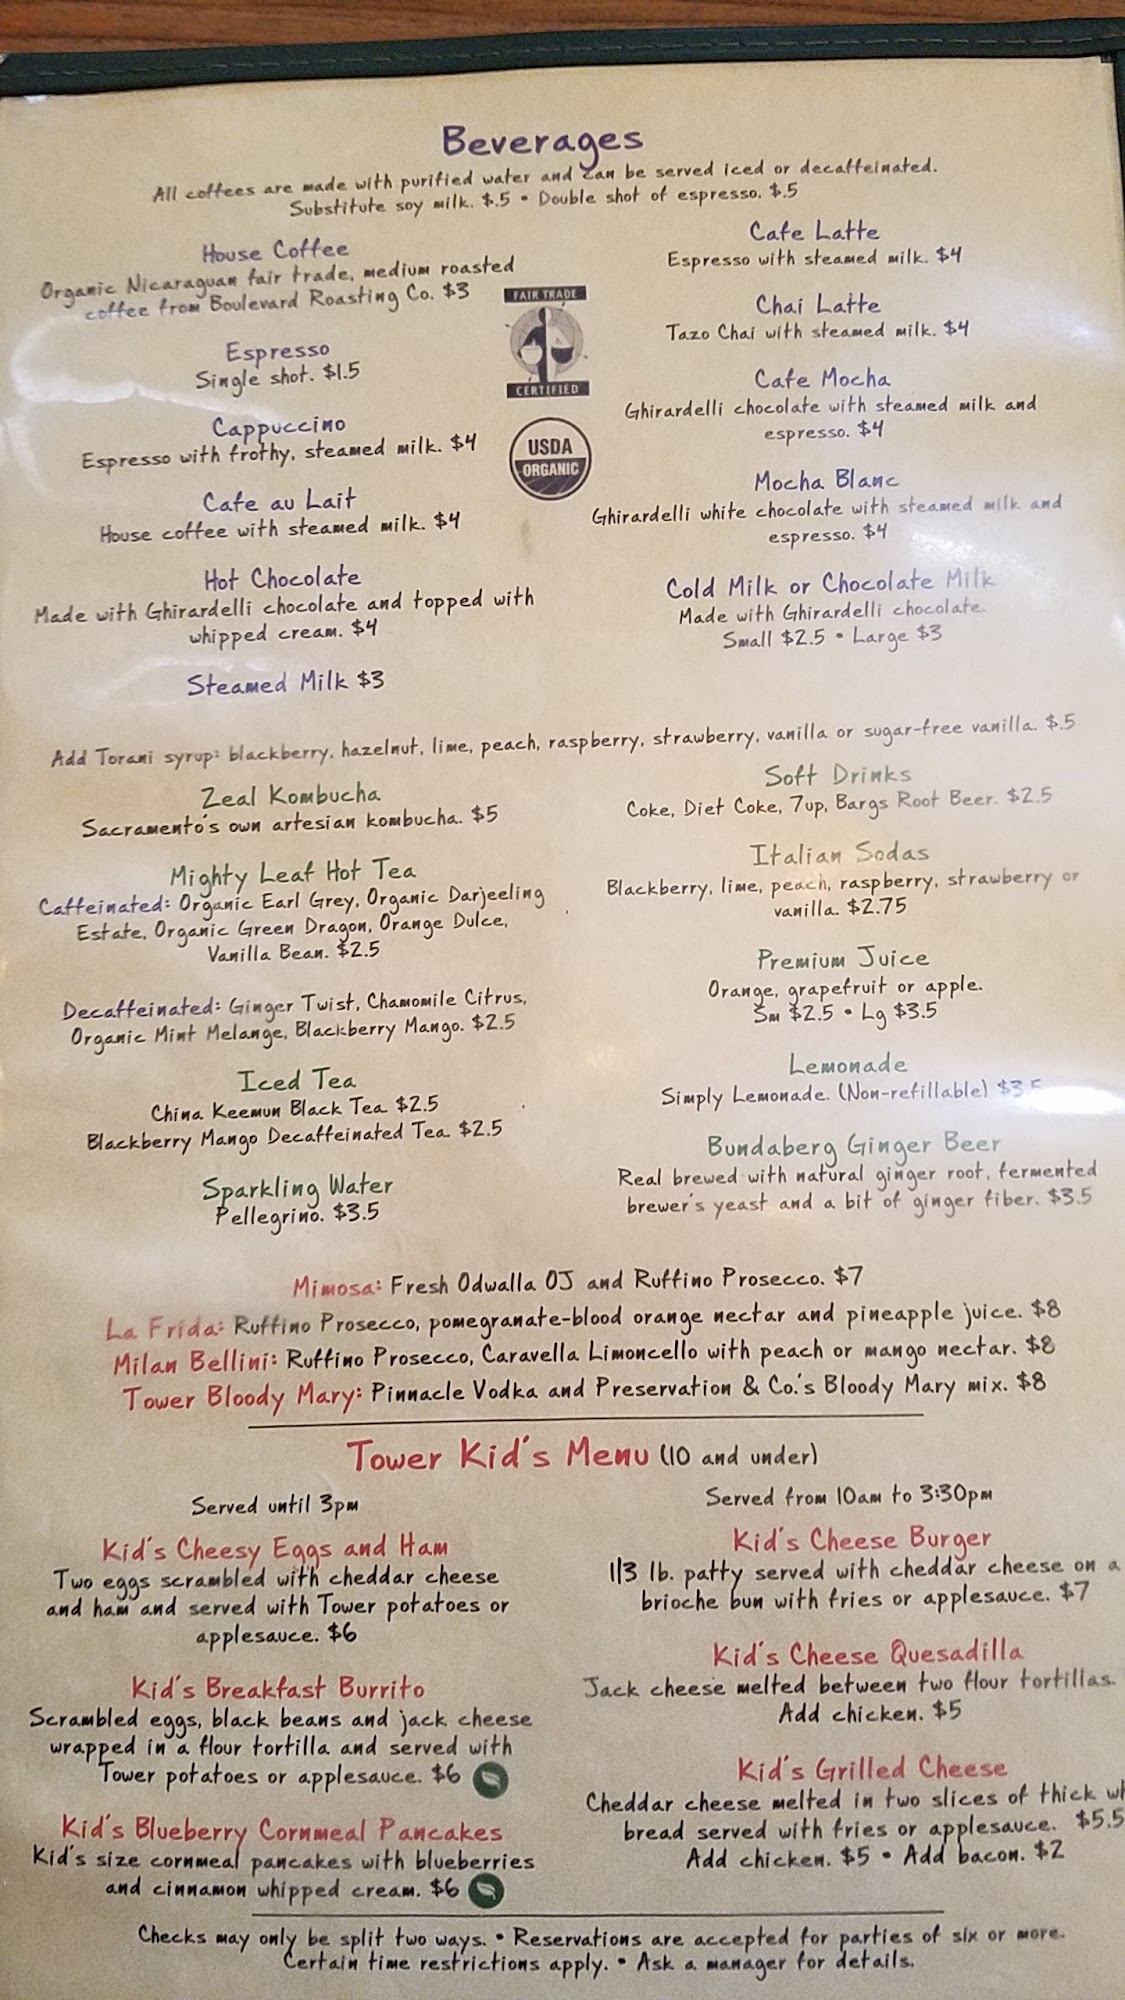 Beverages
All coffees are made with purified water and can be served iced or decaffeinated.
Substitute soy milk. $.5 • Double shot of espresso. $.5
House Coffee
Organic Nicaraguan fair trade, medium roasted
coffee from Boulevard Roasting Co. $3
Espresso
Single shot. $1.5
Cappuccino
Espresso with frothy, steamed milk. $4
Cafe au Lait
House coffee with steamed milk. $4
Hot Chocolate
Made with Ghirardelli chocolate and topped with
whipped cream. $4
Steamed Milk $3
FAIR TRADE
CERTIFIED
USDA
ORGANIC
Cafe Latte
Espresso with steamed milk. $4
Chai Latte
Tazo Chai with steamed milk. $4
Cafe Mocha
Ghirardelli chocolate with steamed milk and
espresso. $4
Mocha Blanc
Ghirardelli white chocolate with steamed milk and
espresso. $4
Cold Milk or Chocolate Milk
Made with Ghirardelli chocolate.
Small $2.5 • Large $3
Add Torani syrup: blackberry, hazelnut, lime, peach, raspberry, strawberry, vanilla or sugar-free vanilla. $.5
Zeal Kombucha
Sacramento's own artesian kombucha. $5
Mighty Leaf Hot Tea
Caffeinated: Organic Earl Grey, Organic Darjeeling
Estate, Organic Green Dragon, Orange Dulce,
Vanilla Bean. $2.5
Decaffeinated: Ginger Twist, Chamomile Citrus,
Organic Mint Melange, Blackberry Mango. $2.5
Iced Tea
China Keemun Black Tea $2.5
Blackberry Mango Decaffeinated Tea $2.5
Sparkling Water
Pellegrino. $3.5
Soft Drinks
Coke, Diet Coke, 7up, Bargs Root Beer. $2.5
Italian Sodas
Blackberry, lime, peach, raspberry, strawberry or
vanilla. $2.75
Premium Juice
Orange, grapefruit or apple.
Sm $2.5 • Lg $3.5
Lemonade
Simply Lemonade. (Non-refillable) $3.5
Bundaberg Ginger Beer
Real brewed with natural ginger root, fermented
brewer's yeast and a bit of ginger fiber. $3.5
Mimosa: Fresh Odwalla OJ and Ruffino Prosecco. $7
La Frida: Ruffino Prosecco, pomegranate-blood orange nectar and pineapple juice. $8
Milan Bellini: Ruffino Prosecco, Caravella Limoncello with peach or mango nectar. $8
Tower Bloody Mary: Pinnacle Vodka and Preservation & Co.'s Bloody Mary mix. $8
Tower Kid's Menu (10 and under)
Served until 3pm
Kid's Cheesy Eggs and Ham
Two eggs scrambled with cheddar cheese
and ham and served with Tower potatoes or
applesauce. $6
Kid's Breakfast Burrito
Scrambled eggs, black beans and jack cheese
wrapped in a flour tortilla and served with
Tower potatoes or applesauce. $6
Kid's Blueberry Cornmeal Pancakes
Kid's size cornmeal pancakes with blueberries
and cinnamon whipped cream. $6
Served from 10am to 3:30pm
Kid's Cheese Burger
1/3 lb. patty served with cheddar cheese on a
brioche bun with fries or applesauce. $7
Kid's Cheese Quesadilla
Jack cheese melted between two flour tortillas.
Add chicken. $5
Kid's Grilled Cheese
Cheddar cheese melted in two slices of thick
bread served with fries or applesauce. $5.5
Add chicken. $5 • Add bacon. $2
Checks may only be split two ways. • Reservations are accepted for parties of six or more.
Certain time restrictions apply. • Ask a manager for details.